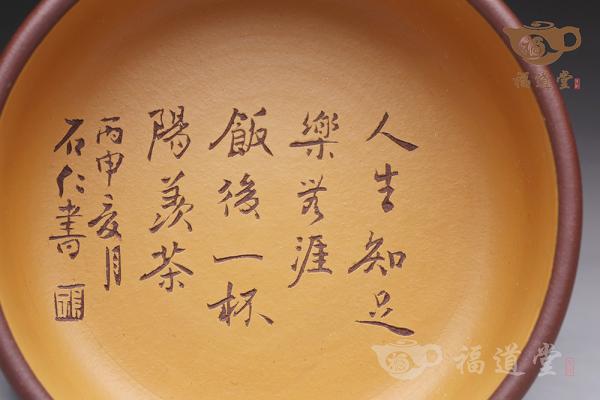 人生知足
樂無涯
飯後一杯
陽羨茶
丙申亥月
石仁書
福道堂
福道堂